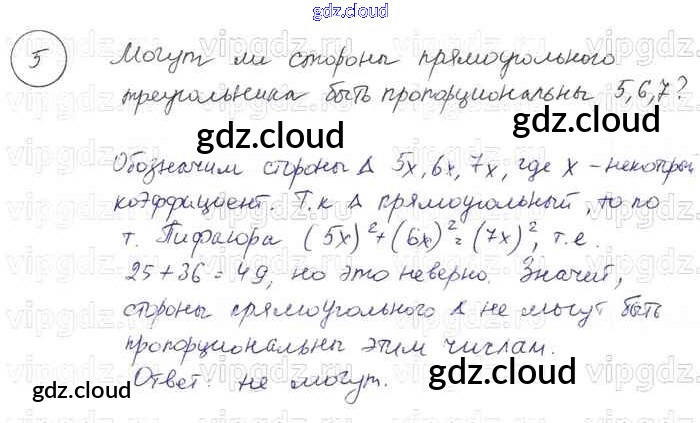 gdz.cloud
5 Могут ли стороны прямоугольного
треугольника быть пропорциональны 5,6,7?
gdz.cloud
gdz.cloud
Обозначим стороны Δ 5x, 6x, 7x, где x - некоторый
коэффициент. Т.к Δ прямоугольный, то по
т. Пифагора (5x)²+(6x)²=(7x)², т.е.
25+36=49, но это неверно. Значит,
стороны прямоугольного Δ не могут быть
пропорциональны этим числам.
Ответ: не могут.
gdz.cloud
gdz.cloud